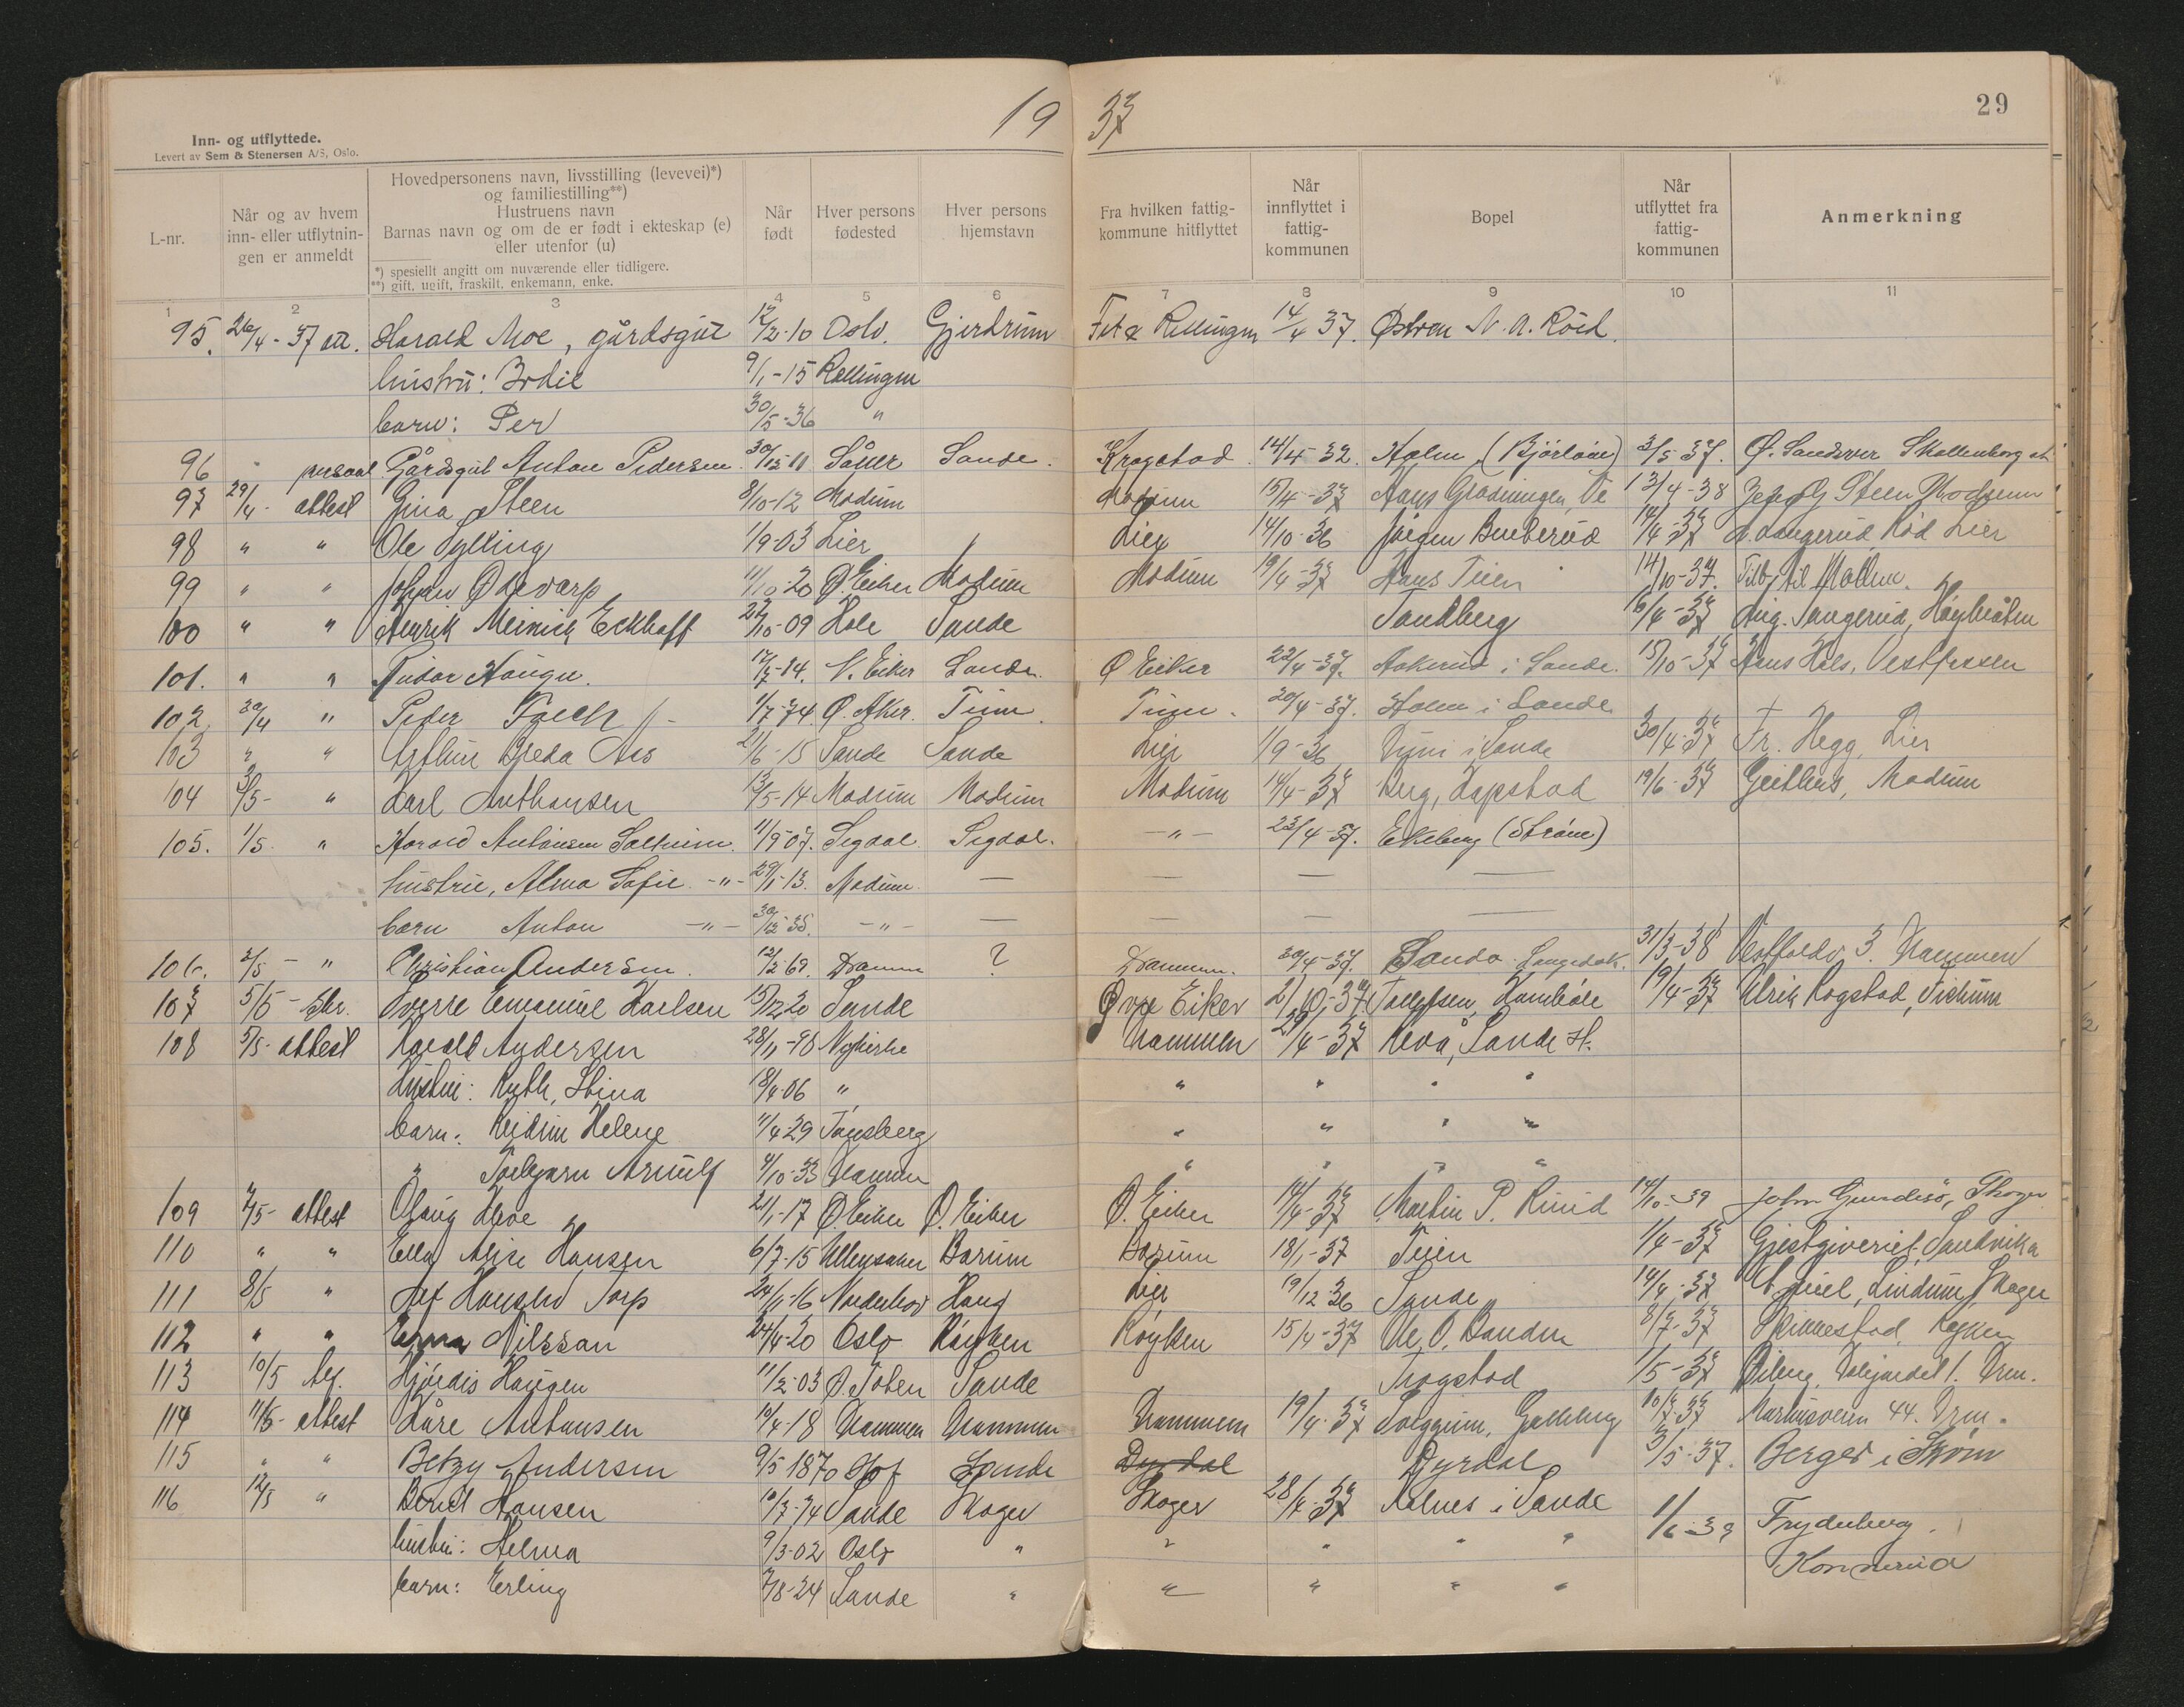 19 37
29
Inn- og utflyttede.
Levert av Sem & Stenersen A/S, Oslo.
L-nr.
Når og av hvem inn- eller utflytnin-gen er anmeldt
Hovedpersonens navn, livsstilling (levevei)*)
og familiestilling**)
Hustruens navn
Barnas navn og om de er født i ekteskap (e)
eller utenfor (u)
*) spesiellt angitt om nuværende eller tidligere.
**) gift, ugift, fraskilt, enkemann, enke.
Når født
Hver persons fødested
Hver persons hjemstavn
Fra hvilken fattig-kommune hitflyttet
Når innflyttet i fattig-kommunen
Bopel
Når utflyttet fra fattig-kommunen
Anmerkning
1 2 3 4 5 6 7 8 9 10 11
95. 26/4-37 att. Harald Moe, gårdsgut 12/2-10 Oslo. Gjerdrum Fet & Rællingen 14/4 37. Østren N. A. Röed.
hustru: Bodil 9/1-15 Rællingen
barn: Per 30/5-36 "
96 " personl Gårdsgut Anton Pedersen 30/12 11 Såner Sande. Kragstad 14/4-32. Holm (Bjørløw) 3/5 37. Ø. Sandsver Skollenborg st
97 29/4- attest Gina Steen 8/10-12 Modum Modum 15/4-37 Hans Gladningen, Ve 13/4-38 Steen Modum
98 " " Ole Sylling 1/9-03 Lier Lier 14/10-36 Jörgen Bueberud 14/4-37 Langerud, Röd Lier
99 " " Johan Ödevarp 11/10-20 Ø. Eiker Modum Modum 19/4-37 Hans Teien 14/10-37. Tilb. til Modum.
100 " " Henrik Meinich Eckhoff 27/10-09 Hole Sande Sandberg 16/4-37 Aug. Langerud, Högbråten
101. " " Fridar Haugu. 17/7-14. N. Eiker Sande. Ø Eiker 22/4-37. Askerud i Sande. 15/10-37 Hans Hals, Vestfossen
102 30/4 " Peder Foech 1/7-74 Ø. Aker. Tinn. Tinn. 20/4-37. Holm i Sande †
103 " " Arthur Breda Aas 21/6-15 Sande Sande Lier 1/9-36 Vyni i Sande 30/4-37 Fr. Hegg, Lier
104 3/5- " Karl Anthonsen 13/5-14 Modum Modum Modum 14/4-37 Berg, Kopstad 19/6-37 Geithus, Modum
105. 1/5. " Harald Antonsen Solheim. 11/9 07. Sigdal Sigdal. -"- 23/4-37. Ekeberg (Ström)
hustru, Alma Sofie -"- 29/1-13. Modum — — — —
barn Anton -"- 30/12-35. -"- — — — —
106. 2/5 - " Christian Andersen. 12/2-69. Dramm ? Drammen. 30/4-37. Sande. 31/3-38 Vestfoldv 3. Drammen
107 5/5 - Skr. Sverre Emanuel Karlsen 15/12 20 Sande Øvre Eiker 2/10-37 Tollefsen, Hambóle 19/4-37 Ulrik Rogstad, Vikum
108 5/5- attest Harald Andersen 28/11-98 Nykirke Drammen 29/4-37 Revå, Sande st.
Hustru: Ruth, Stina 18/4-06 " " " " "
barn: Reidun Helene 1/4 29 Tönsberg " " " "
" Torbjørn Arnulf 4/10-33 Drammen " " " "
109 7/5- attest Olaug Hvoe 21/1-17 Ø. Eiker Ø. Eiker Ø. Eiker 14/4-37 Martin P. Ruud 14/10-39 John Gundesö, Skoger
110 " " Ella Alise Hansen 6/7-15 Ullensaker Bærum Bærum 18/1-37 Teien 1/4-37 Gjestgiveriet, Sandvika
111 8/5 " Alf Haugslid Torp 24/11-16 Norderhov Haug Lier 19/12 36 Sande 14/4-37 Lindum, Skoger
112 " " Erna Nilssan 24/4-20 Oslo Röyken Röyken 15/4-37 Ole O. Sanden 8/7-37 Skinnestad, Röyken
113 10/5 tlf. Hjördis Haugen 11/2-03 Ø. Toten Sande Trogstad 1/5-37 Öiberg, Drm.
114 11/5- attest Kåre Anthonsen 10/4-18 Drammen Drammen Drammen 19/4-37 Solgrunn, Galleberg 10/7-37 44. Drm.
115 " " Betzy Andersen 9/5 1870 Hof Sande Dyrdal Dyrdal 3/5-37. Berger i Strøm
116 12/5 " Bernt Hansen 10/7-74 Sande Skoger Skoger 28/4-37 Aalnes i Sande 1/6-39 Frydenberg.
hustru: Helma 9/3-02 Oslo " " " " " Konnerud
barn: Erling 7/8-24 Sande " " " " "